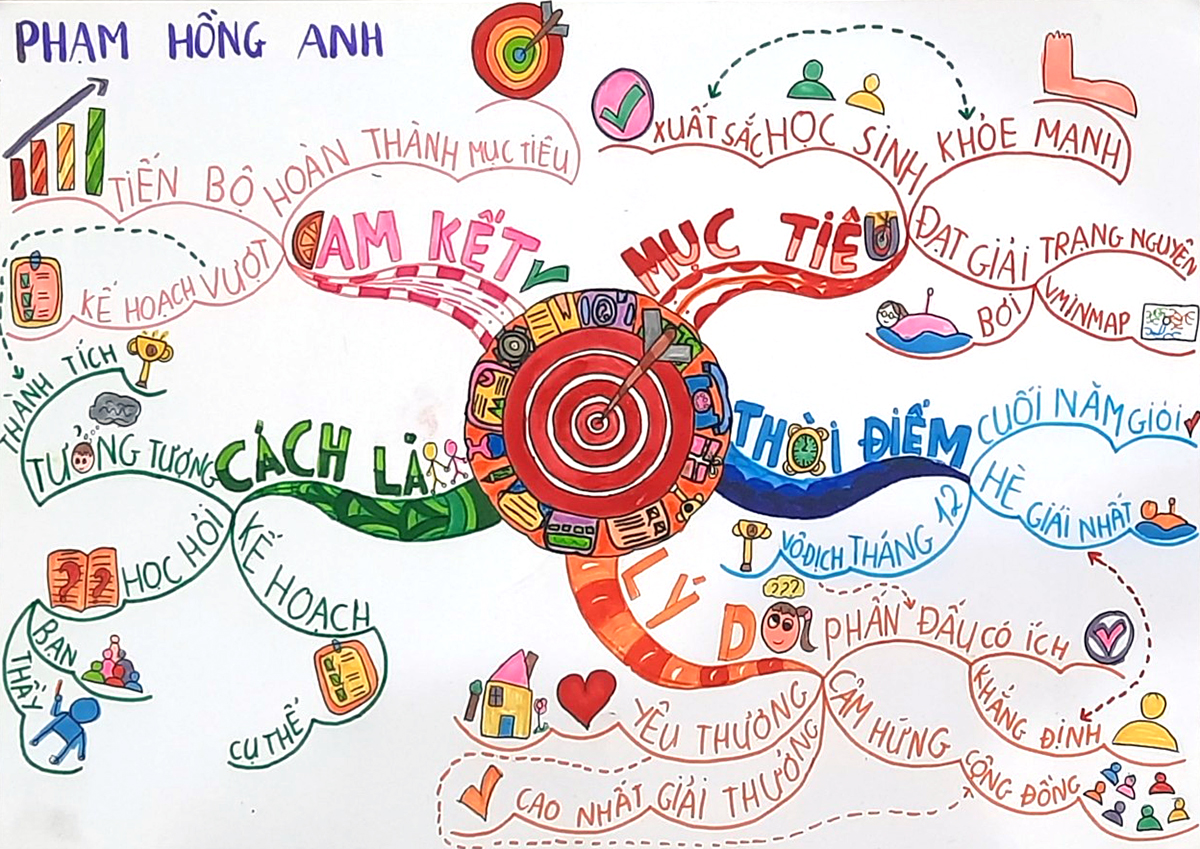 PHẠM HỒNG ANH
CAM KẾT
HOÀN THÀNH MỤC TIÊU
TIẾN BỘ
VƯỢT
KẾ HOẠCH
MỤC TIÊU
HỌC SINH
XUẤT SẮC
KHỎE MẠNH
ĐẠT GIẢI
TRẠNG NGUYÊN
BƠI
VMINMAP
THỜI ĐIỂM
CUỐI NĂM GIỎI
HÈ
GIẢI NHẤT
THÁNG 12
VÔ ĐỊCH
LÝ DO
???
PHẤN ĐẤU CÓ ÍCH
KHẲNG ĐỊNH
CẢM HỨNG
CỘNG ĐỒNG
YÊU THƯƠNG
GIẢI THƯỞNG
CAO NHẤT
CÁCH LÀ
TƯỞNG TƯỢNG
THÀNH TÍCH
HỌC HỎI
??
BẠN
THẦY
KẾ HOẠCH
CỤ THỂ